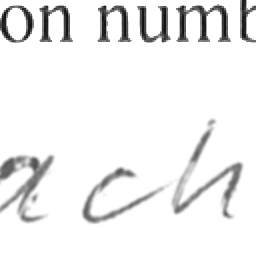 on numb
ach